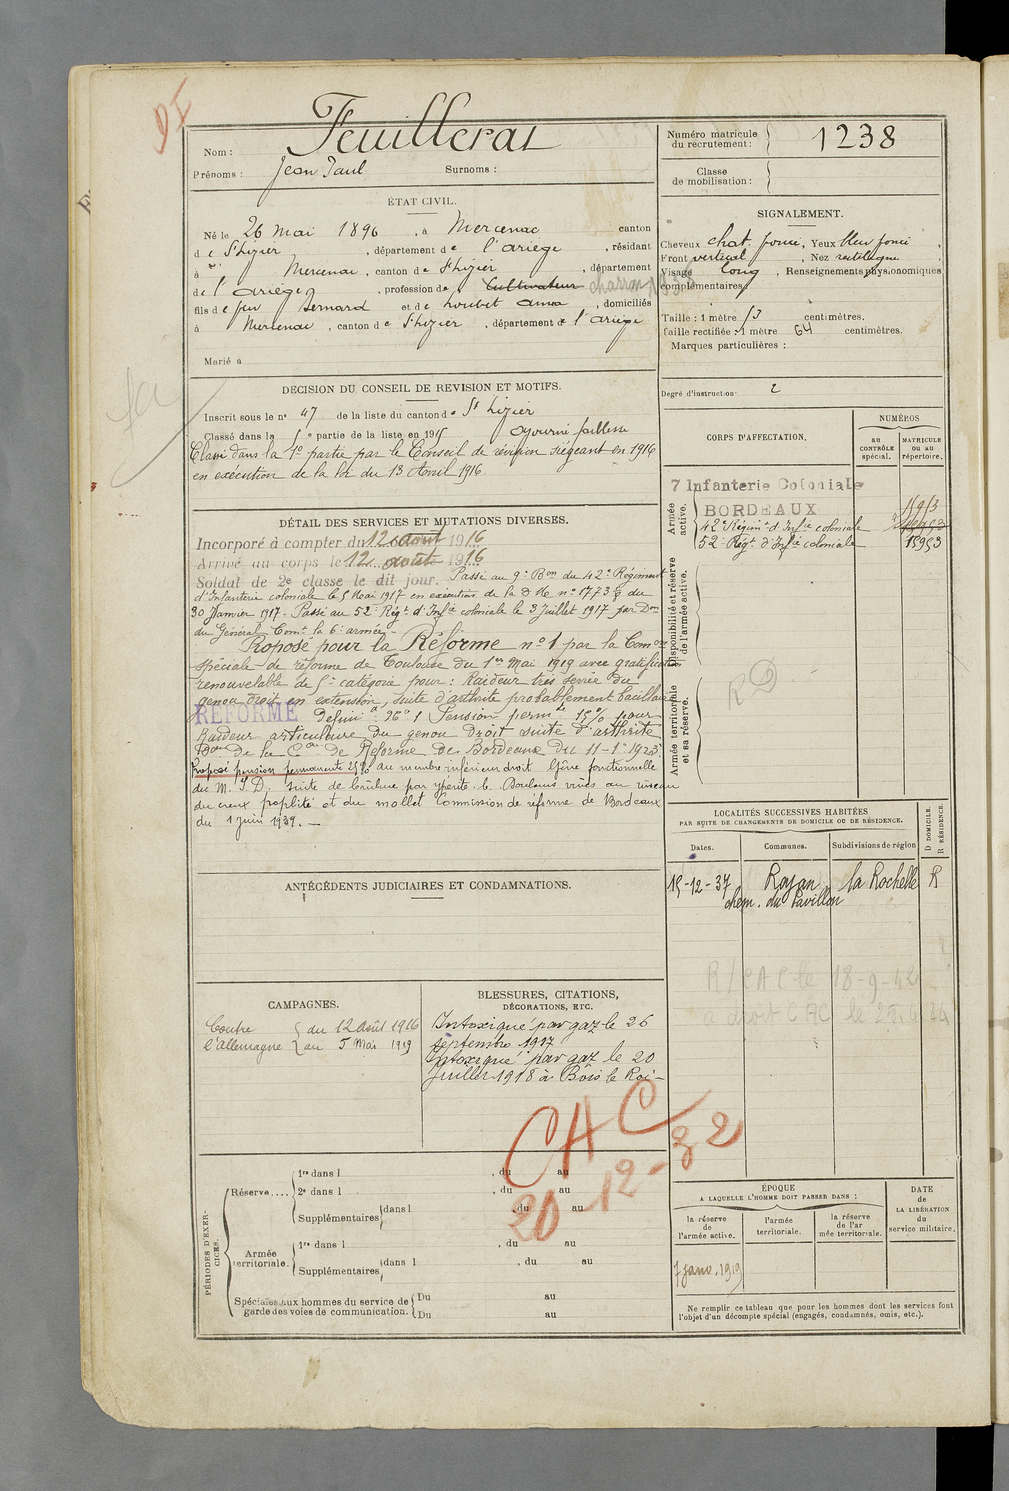 DI
Nom : Feuillerat
Prénoms : Jean Paul Surnoms :
Numéro matricule du recrutement : 1238
Classe de mobilisation :
ÉTAT CIVIL.
Né le 26 Mai 1896, à Mercenac canton
de St Lizier, département de l'ariège, résidant
à Mercenac, canton de St Lizier, département
de l'ariège, profession de cultivateur charron
fils de feu Bernard et de Loubet Anna, domiciliés
à Mercenac, canton de St Lizier, département de l'ariège
Marié à
SIGNALEMENT.
Cheveux chat. foncé, Yeux bleu foncé,
Front vertical, Nez rectiligne,
Visage long, Renseignements physionomiques
complémentaires
Taille : 1 mètre 63 centimètres.
Taille rectifiée : 1 mètre 64 centimètres.
Marques particulières :
Degré d'instruction : 2
DÉCISION DU CONSEIL DE REVISION ET MOTIFS.
Inscrit sous le n° 47 de la liste du canton de St Lizier
Classé dans la 5e partie de la liste en 1915 Ajourné faiblesse
Classé dans la 1e partie par le Conseil de révision siégeant en 1916
en exécution de la loi du 13 Avril 1916.
DÉTAIL DES SERVICES ET MUTATIONS DIVERSES.
Incorporé à compter du 12 août 1916
Arrivé au corps le 12 août 1916
Soldat de 2e classe le dit jour. Passé au 9e Bon du 42e Régiment
d'Infanterie coloniale le 5 Mai 1917 en exécution de la D. M. n° 1773 du
30 Janvier 1917 - Passé au 52e Régt d'Infie coloniale le 3 Juillet 1917 par Don
du Général Comt la 6e armée -
Proposé pour la Réforme n° 1 par la Comon
spéciale de réforme de Toulouse du 1er Mai 1919 avec gratification
renouvelable de 8e catégorie pour : Raideur très serrée du
genou droit en extension, suite d'arthrite probablement bacillaire
REFORMÉ Définif n° 1 Pension permte 15% pour
Raideur articulaire du genou Droit suite d'arthrite
Don de la Con de Réforme de Bordeaux du 11-1-1923
Proposé pension permanente 25% au membre inférieur droit. Gêne fonctionnelle
du M. I. D. suite de brûlure par ypérite. 2. Douleurs vives au niveau
du creux poplité et du mollet Commission de réforme de Bordeaux
du 1 Juin 1939. —
CORPS D'AFFECTATION.
NUMÉROS
au CONTRÔLE spécial.
MATRICULE ou au répertoire.
Armée active.
7 Infanterie Coloniale
BORDEAUX
42e Régimt d'Infie coloniale
52e Régt d'Infie coloniale 15953
Disponibilité et réserve de l'armée active.
Armée territoriale et sa réserve.
RD
LOCALITÉS SUCCESSIVES HABITÉES
PAR SUITE DE CHANGEMENTS DE DOMICILE OU DE RÉSIDENCE.
Dates. Communes. Subdivisions de région D DOMICILE. R RÉSIDENCE.
15-12-37 Royan la Rochelle R
chem. du Pavillon
R/CAC le 18-9-42
ANTÉCÉDENTS JUDICIAIRES ET CONDAMNATIONS.
CAMPAGNES.
Contre l'Allemagne { du 12 Août 1916
au 5 Mai 1919
BLESSURES, CITATIONS,
DÉCORATIONS, ETC.
Intoxiqué par gaz le 26
septembre 1917
Intoxiqué par gaz le 20
Juillet 1918 à Bois le Roi -
CAC
20-12-32
PÉRIODES D'EXERCICES.
Réserve.... 1re dans l , du au
2e dans l , du au
Supplémentaires dans l , du au
Armée territoriale. 1re dans l , du au
Supplémentaires dans l , du au
Spéciales aux hommes du service de garde des voies de communication. Du au
Du au
ÉPOQUE
A LAQUELLE L'HOMME DOIT PASSER DANS :
la réserve de l'armée active.
l'armée territoriale.
la réserve de l'armée territoriale.
DATE de LA LIBÉRATION du service militaire.
7 janv. 1919
Ne remplir ce tableau que pour les hommes dont les services font
l'objet d'un décompte spécial (engagés, condamnés, omis, etc.).